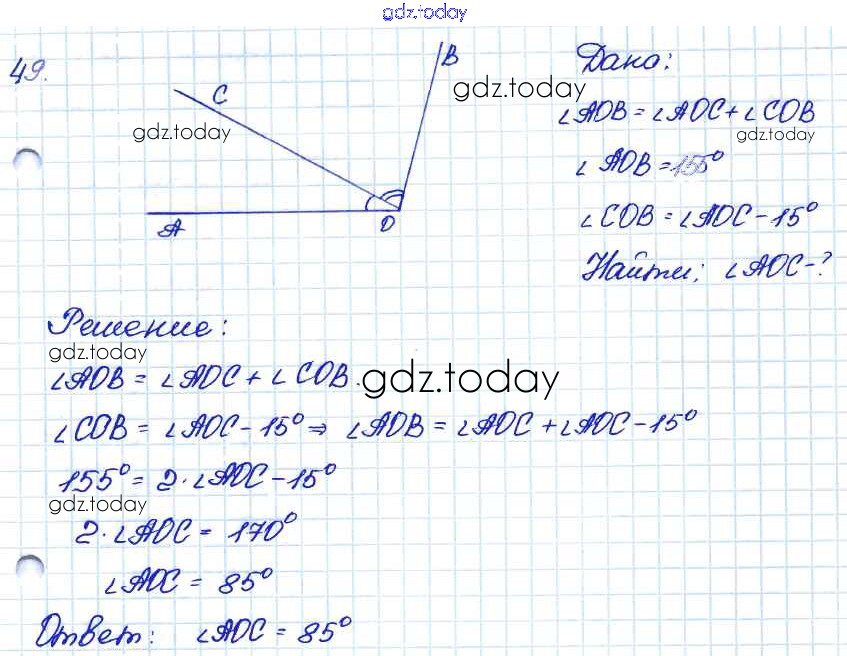 gdz.today
49.
C
B
Дано:
gdz.today
gdz.today
∠AOB = ∠AOC + ∠COB
gdz.today
∠AOB = 155°
A
O
∠COB = ∠AOC - 15°
Найти: ∠AOC - ?
Решение:
gdz.today
∠AOB = ∠AOC + ∠COB.
gdz.today
∠COB = ∠AOC - 15° ⇒ ∠AOB = ∠AOC + ∠AOC - 15°
155° = 2 · ∠AOC - 15°
gdz.today
2 · ∠AOC = 170°
∠AOC = 85°
Ответ: ∠AOC = 85°